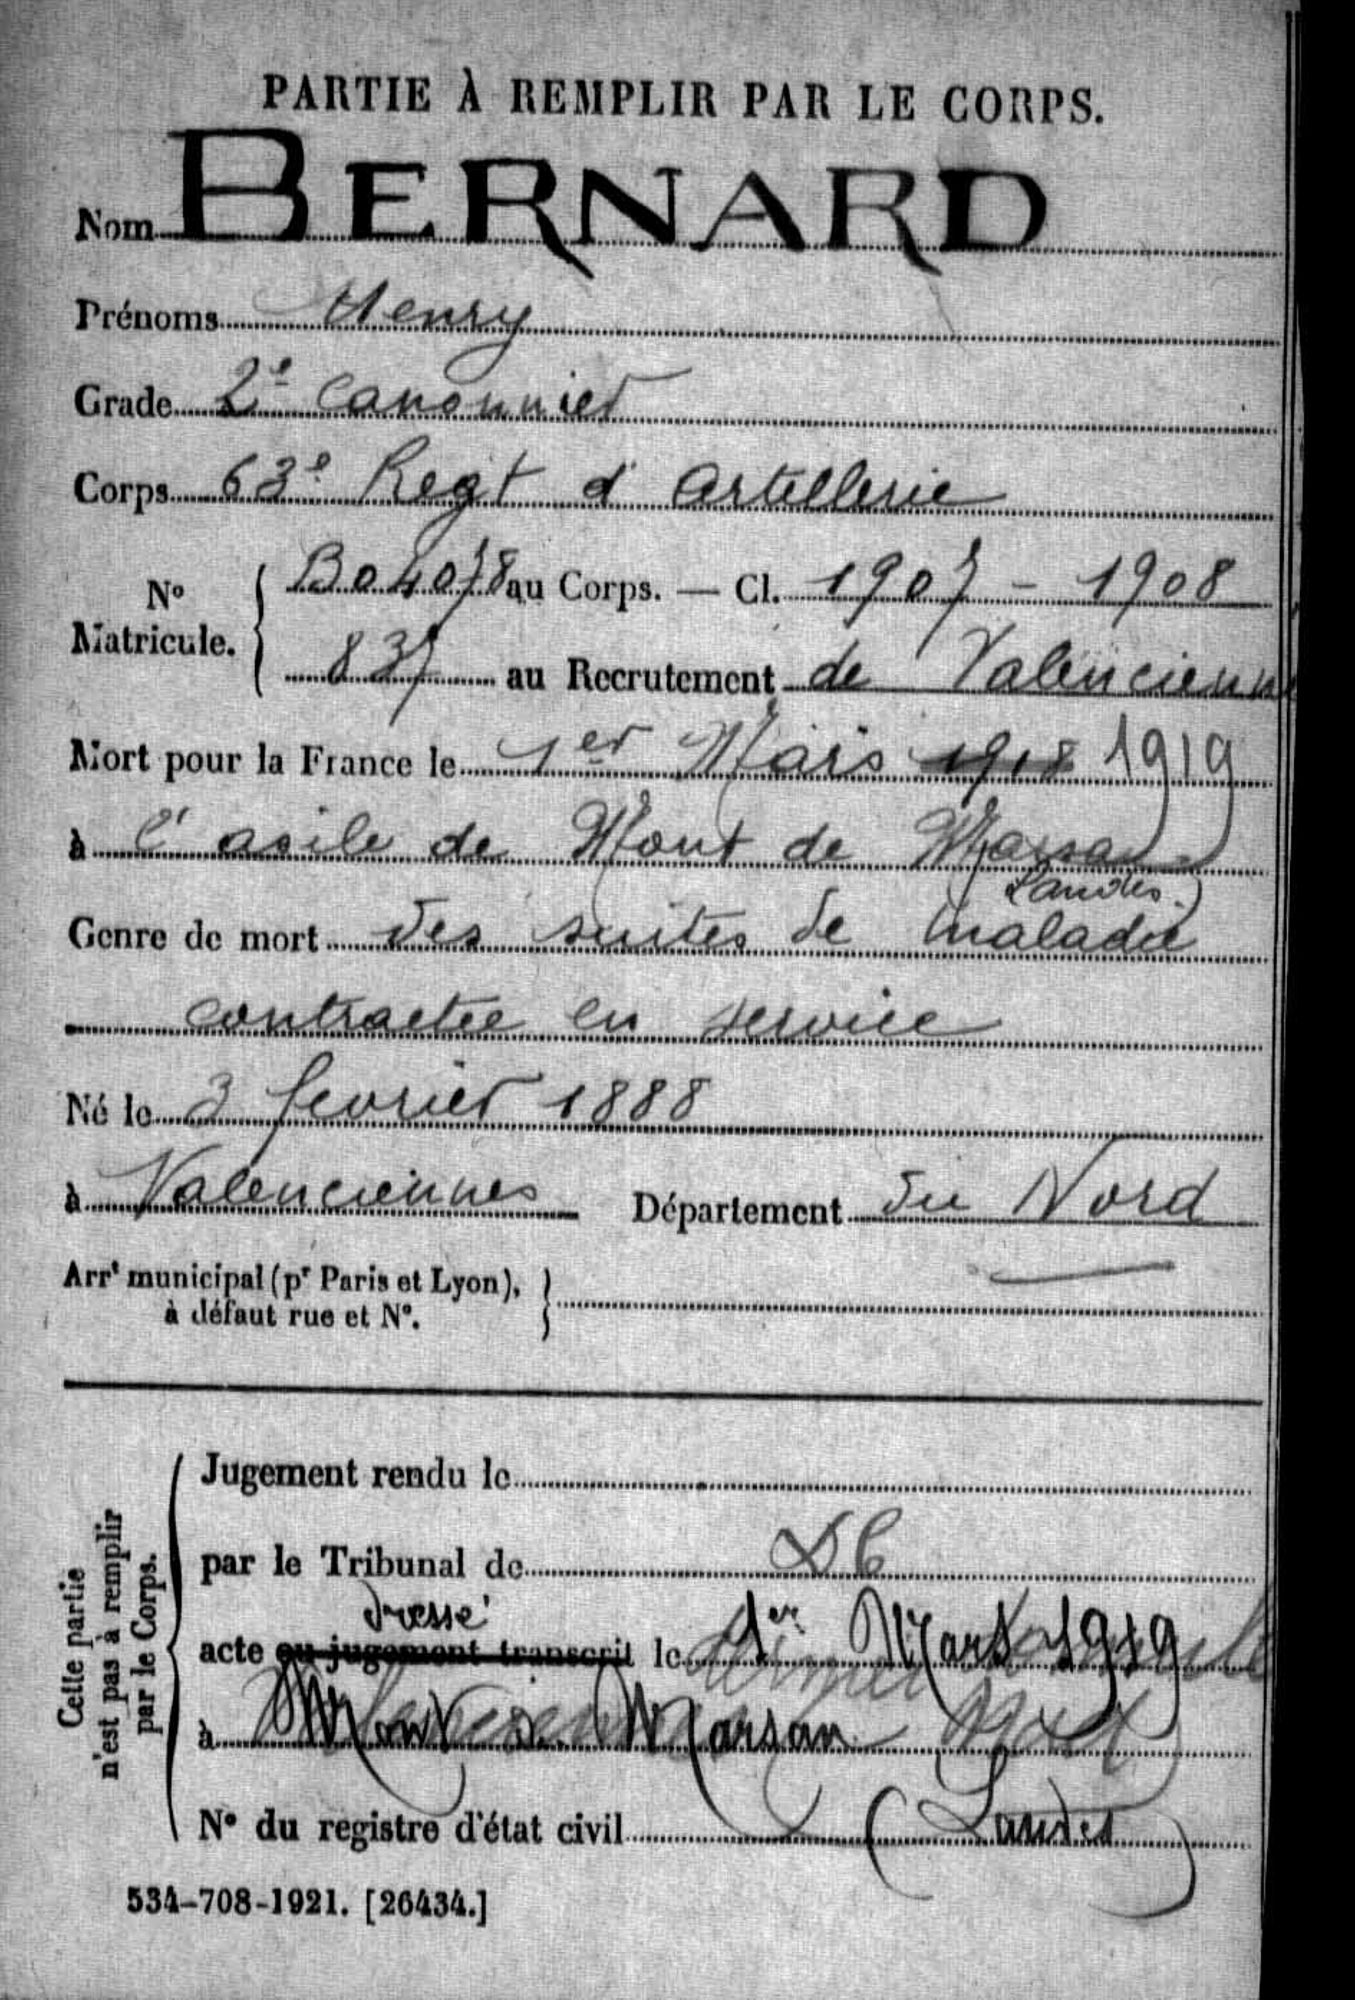 PARTIE À REMPLIR PAR LE CORPS.
Nom BERNARD
Prénoms Henry
Grade 2e Canonnier
Corps 63e Regt d'Artillerie
No Matricule. { B04078 au Corps. — Cl. 1907 - 1908
837 au Recrutement de Valencienn
Mort pour la France le 1er Mars 1918 1919
à l'asile de Mont de Marsan
Landes.)
Genre de mort des suites de maladie
contractée en service
Né le 3 fevrier 1888
à Valenciennes Département du Nord
Arrt municipal (pr Paris et Lyon), }
à défaut rue et No.
Cette partie
n'est pas à remplir
par le Corps.
Jugement rendu le
par le Tribunal de DC
dressé
acte ou jugement transcrit le 1er Mars 1919
à Mont de Marsan
No du registre d'état civil (Landes)
534-708-1921. [26434.]